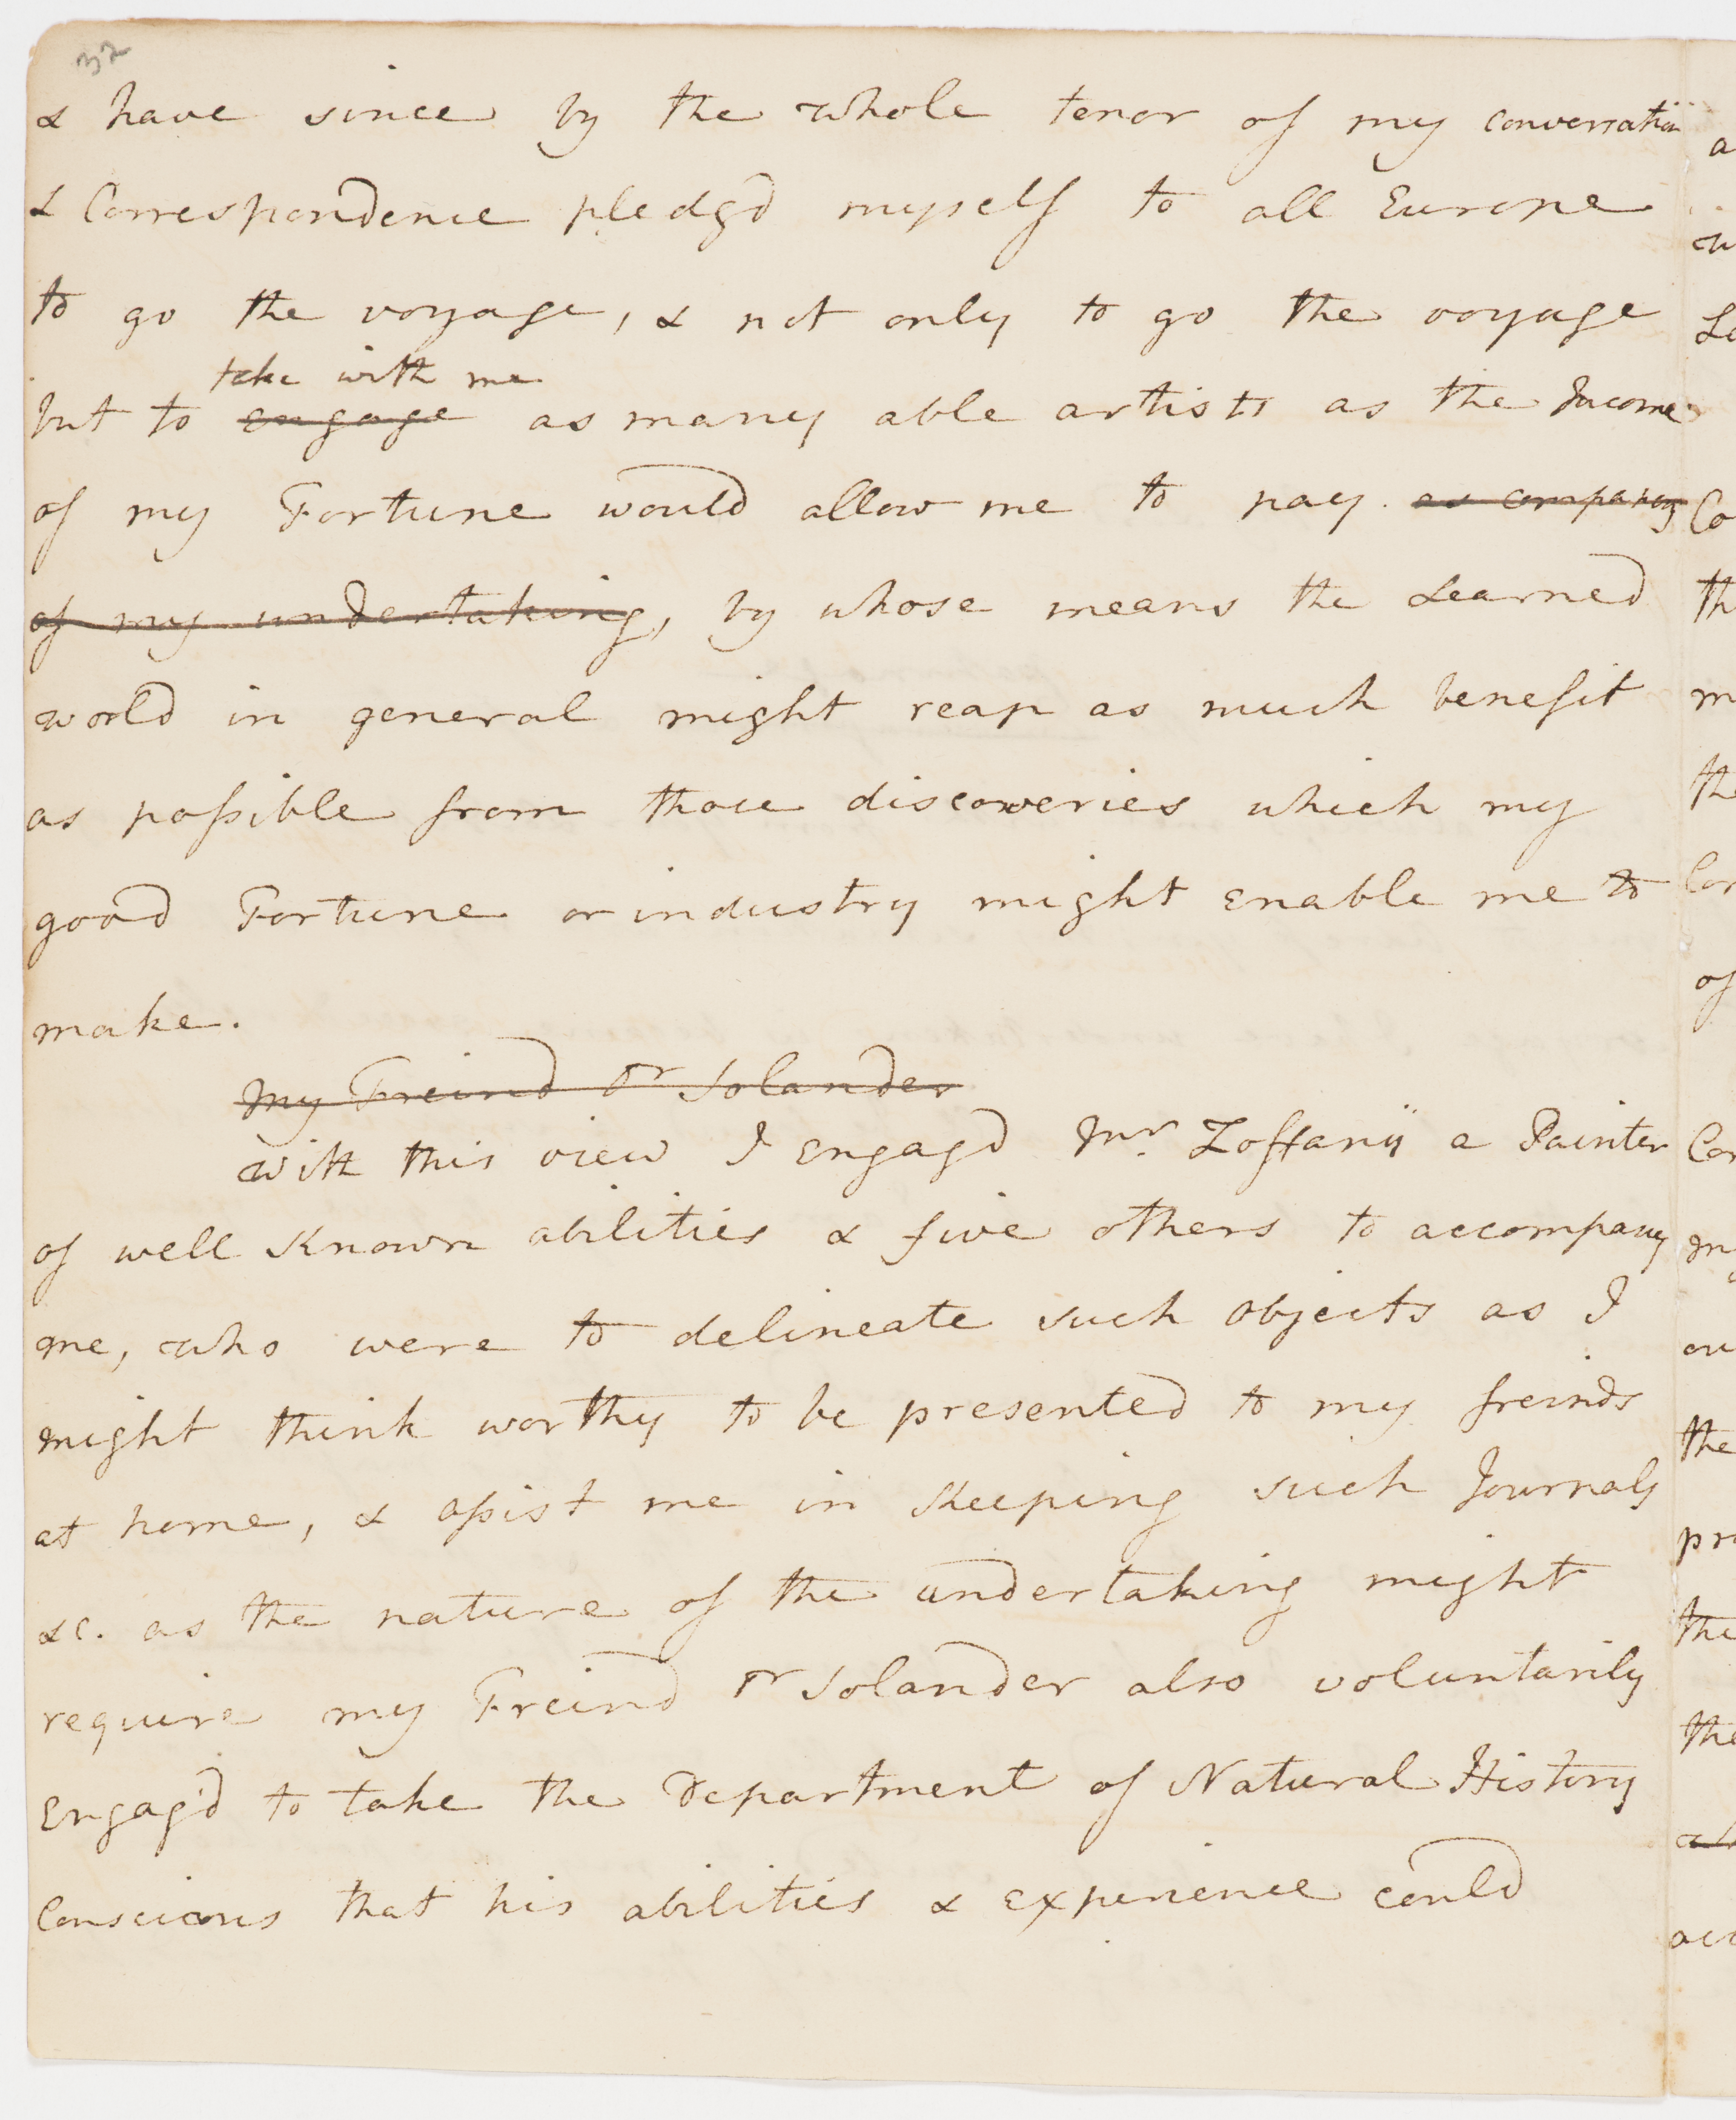 32
& have since by the whole tenor of my conversation
& Correspondence pledgd myself to all Europe
to go the voyage, & not only to go the voyage
take with me
but to engage as many able artists as the Income
of my Fortune would allow me to pay. as companions
of my undertaking, by whose means the Learned
world in general might reap as much benefit
as possible from those discoveries which my
good Fortune or industry might Enable me to
make.
My Freind Dr Solander
with this view I Engagd Mr. Zoffanÿ a Painter
of well Known abilities & five others to accompany
me, who were to delineate such Objects as I
might think worthy to be presented to my freinds
at home, & assist me in Keeping such Journals
&c. as the nature of the undertaking might
require my Freind Dr Solander also voluntarily
Engag'd to take the Department of Natural History
Conscious that his abilities & Experience could